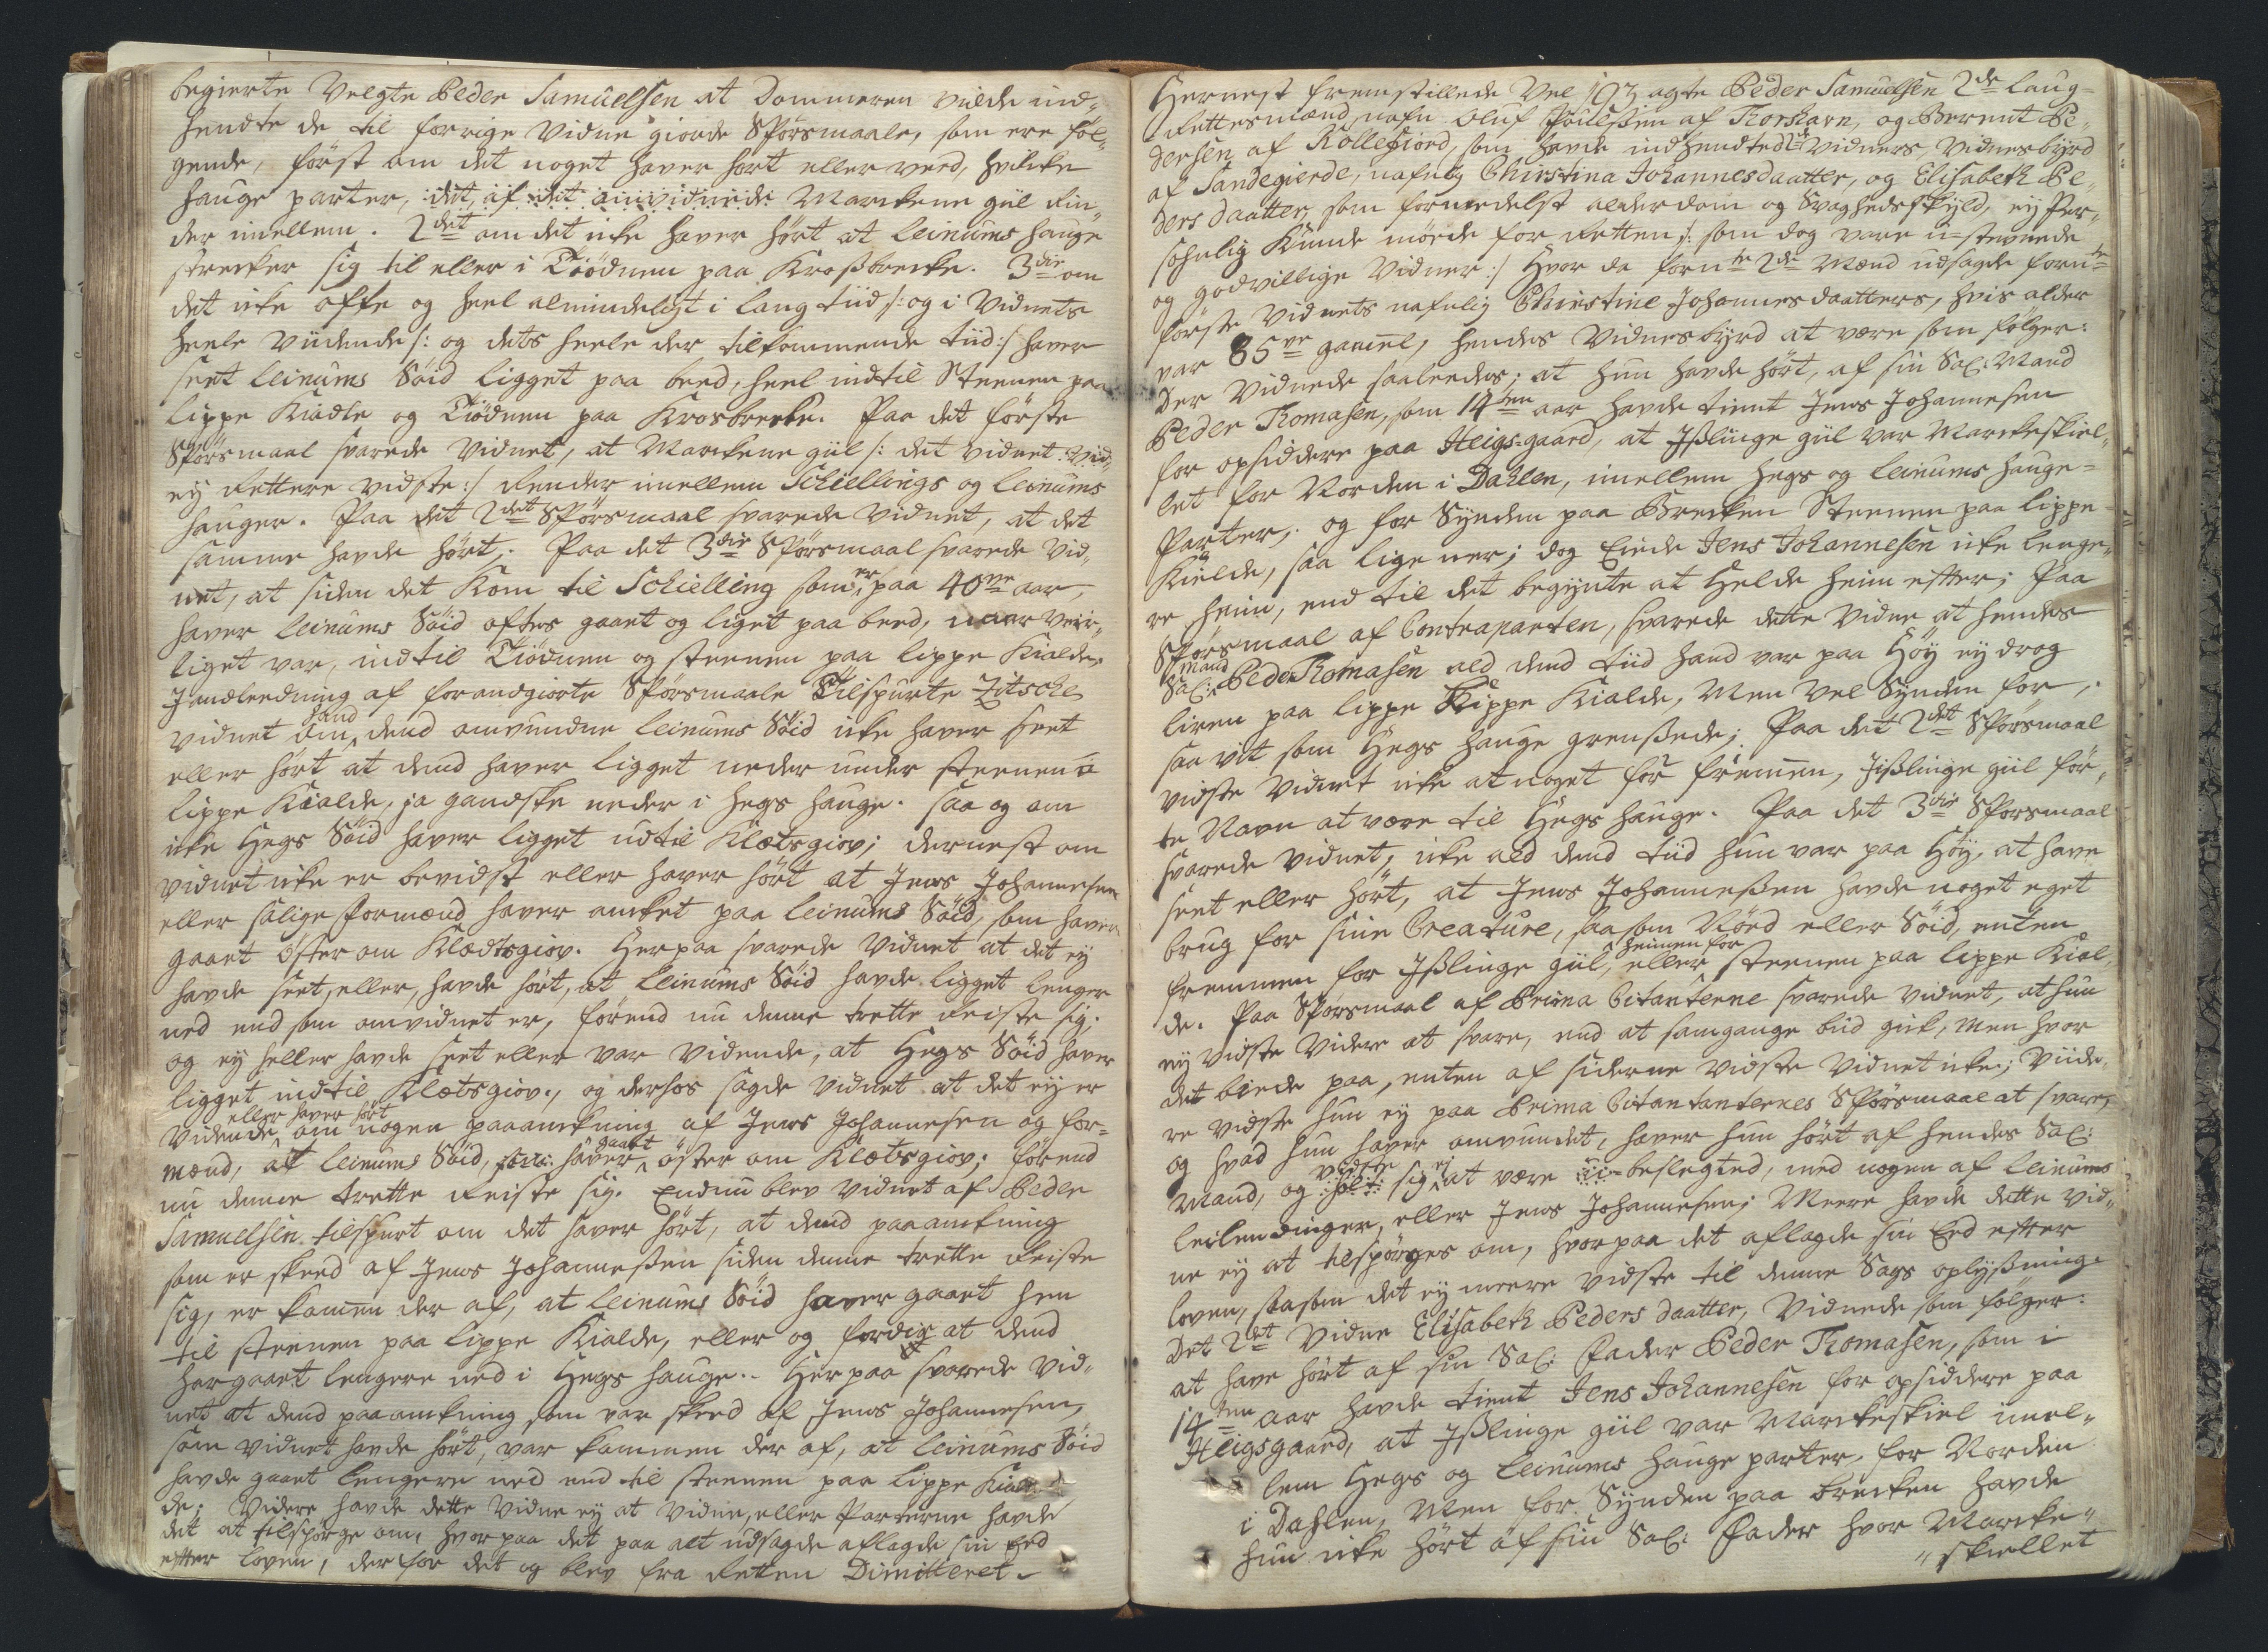 begierte Velagte Peder Samuelsen at Dommeren vilde ind„
hendte de til forrige Vidne giorde Spörsmaale, som ere föl„
gende, först om det noget haver hört eller veed, hvilke
hauge parter, det, af det anvidnede Markene gül Ren„
der imellem. 2det om det icke haver hört at Leinums hauge
strecker sig til eller i Tiödnen paa Kroßbrecke. 3die om
det icke ofte og heel almindeligt i lang tiid /: og i Vidnets
heele Viidende /: og dets heele der tilkommende tiid :/ haver
seet Leinums Söid ligget paa beed, heel indtil Steenen paa
Lippe Kialde og Tiödnen paa Krosbrecke. Paa det förste
Spörsmaal svarede Vidnet, at Markene gül /: det vidnet
ey rettere vidste :/ Render imellem Schiellings og Leinums
hauger. Paa det 2det Spörsmaal svarede Vidnet, at det
samme havde hört; Paa det 3die Spörsmaal svarede Vid„
net, at siden det Kom til Schielling som er paa 40ve aar,
haver Leinums Söid oftes gaaet og liget paa beed, naar veir„
liget var, indtil Tiödnen og steenen paa Lippe Kialde.
I andleedning af forandgiorte Spörsmaale Tilspurte Zitsche
Vidnet om dend omvundne Leinums Söid icke haver seet
eller hört at dend haver ligget neder under steenen o
Lippe Kialde, ja gandske neder i Hegs hauge. saa og om
icke Hegs Söid haver ligget udtil Klætsgiov; dernest om
vidnet icke er bevidst eller haver hört at Jens Johannesen
eller salige Formænd haver anket paa Leinums Söid, som haver
gaaet öster om Klædtsgiov. Herpaa svarede Vidnet at det ey
havde seet, eller, havde hört, at Leinums Söid havde ligget lenger
ned end som anvidnet er, förend nu denne trette Reiste sig;
og ey heller havde seet eller var Vidende, at Hegs Söid haver
ligget indtil Klætsgiov., og derhos sagde vidnet at det ey er
eller haver hört
Vidende om nogen paaankning af Jens Johannesen og for=
mænd, at Leinums Söid, haver gaaet öster om Klætsgiov; förend
nu denne trette Reiste sig. Endnu blev Vidnet af Peder
Samuelsen tilspurt om det haver hört, at dend paaankning
som er skeed af Jens Johanneßen siden denne trette Reiste
sig, er kommen der af, at Leinums Söid haver gaaet hen
til steenen paa Lippe Kialde, eller og fordie at dend
har gaaet lengere ned i Hegs hauge. Her paa svarede Vid„
net at dend paaankning som var skeed af Jens Johannesen,
som vidnet havde hört, var kommen der af, at Leinums Söid
havde gaaet lengere ned end til steenen paa Lippe Kial„
de; Videre havde dette Vidne ey at Vidne, eller Parterne havde
det at tilspörge om, hvorpaa det paa alt udsagde aflagde sin Eed
efter loven, der for det og blev fra Retten Dimitteret.
Hernest fremstillede Vel agte Peder Samuelsen 2de Laug=
Rettesmænd, nafn. Oluf Joensen af Thorshavn, og Berent Pe„
dersen af Kollefiord, som havde indhendted 2de Vidners Vidnesbyrd
af Sandegierde, nafnlig Christina Johannesdaatter, og Elisabeth Pe„
ders daatter, som formedelst alderdom og Svagheds skyld, ey Per„
sohnlig Kunde möede for Retten, /: som dog vare u-stevnede
og godvillige Vidner :/ hvor da fornte 2de Mænd udsagde fornte
förste Vidnets nafnlig Christine Johannes daatters, hvis alder
var 85ve gamel, hendes Vidnesbyrd at være som fölger:
Der Vidnede saaleedes; at hun havde hört, af sin Sal: Mand
Peder Thomasen, som 14ten aar havde tient Jens Johannesen
for opsiddere paa Heigs-gaard, at Ißlinge gül var Markeskiel„
let for Norden i Dahlen, imellem Hegs og Leinums hauge=
Parter, og for Synden paa Brecken Steenen paa Lippe
Kielde, saa lige ner; dog Eiede Jens Johannesen icke lenge„
re heim, end til det begynte at Helde heim efter; Paa
Spörsmaal af Contraparten, svarede dette Vidne at hendes
Sal: Mand Peder Thomasen ald dend tiid hand var paa Höy ey drog
linen paa Lippe Kialde, Men vel Synden for,
saa vit som Hegs hauge grenßede; Paa det 2det Spörsmaal
vidste Vidnet icke at noget for fremen, Ißlinge gül för„
te Navn at være til Hegs hauge. Paa det 3die Spörsmaal
svarede vidnet, icke ald dend tiid hun var paa Höy, at have
seet eller hört, at Jens Johanneßen havde noget eget
brug for sine Creature, saasom Nöed eller Söid, enten
fremmen for Ißlinge gül, eller heimen for steenen paa Lippe Kial„
de. Paa Spörsmaal af Prima Citanterne svarede vidnet, at hun
ey vidste Videre at svare, end at samgange bud gik, men hvor
det biede paa, enten af siderne vidste Vidnet icke; Viide„
re vidste hun ey paa Prima Citantanternes Spörsmaal at svare,
og hvad hun haver omvundet, haver hun hört af hendes Sal:
Mand, og vidste sig ey at være beslegted, med nogen af Leinums
Leilendinger, eller Jens Johannesen; Meere havde dette vid„
ne ey at tilspörges om, hvorpaa det aflagde sin Eed efter
loven, saasom det ey meere vidste til denne Sags oplyßning.
Det 2det Vidne Elisabeth Peders daatter, Vidnede som fölger:
at have hört af sin Sal: Fader Peder Thomasen, som i
14ten aar havde tient Jens Johannesen for opsiddere paa
Heigsgaard, at Ißlinge gül var Markeskiel imel„
lem Hegs og Leinums hauge parter, for Norden
i Dahlen, Men for Synden paa brecken havde
hun icke hört af sin Sal: Fader hvor Marke„
„skiellet